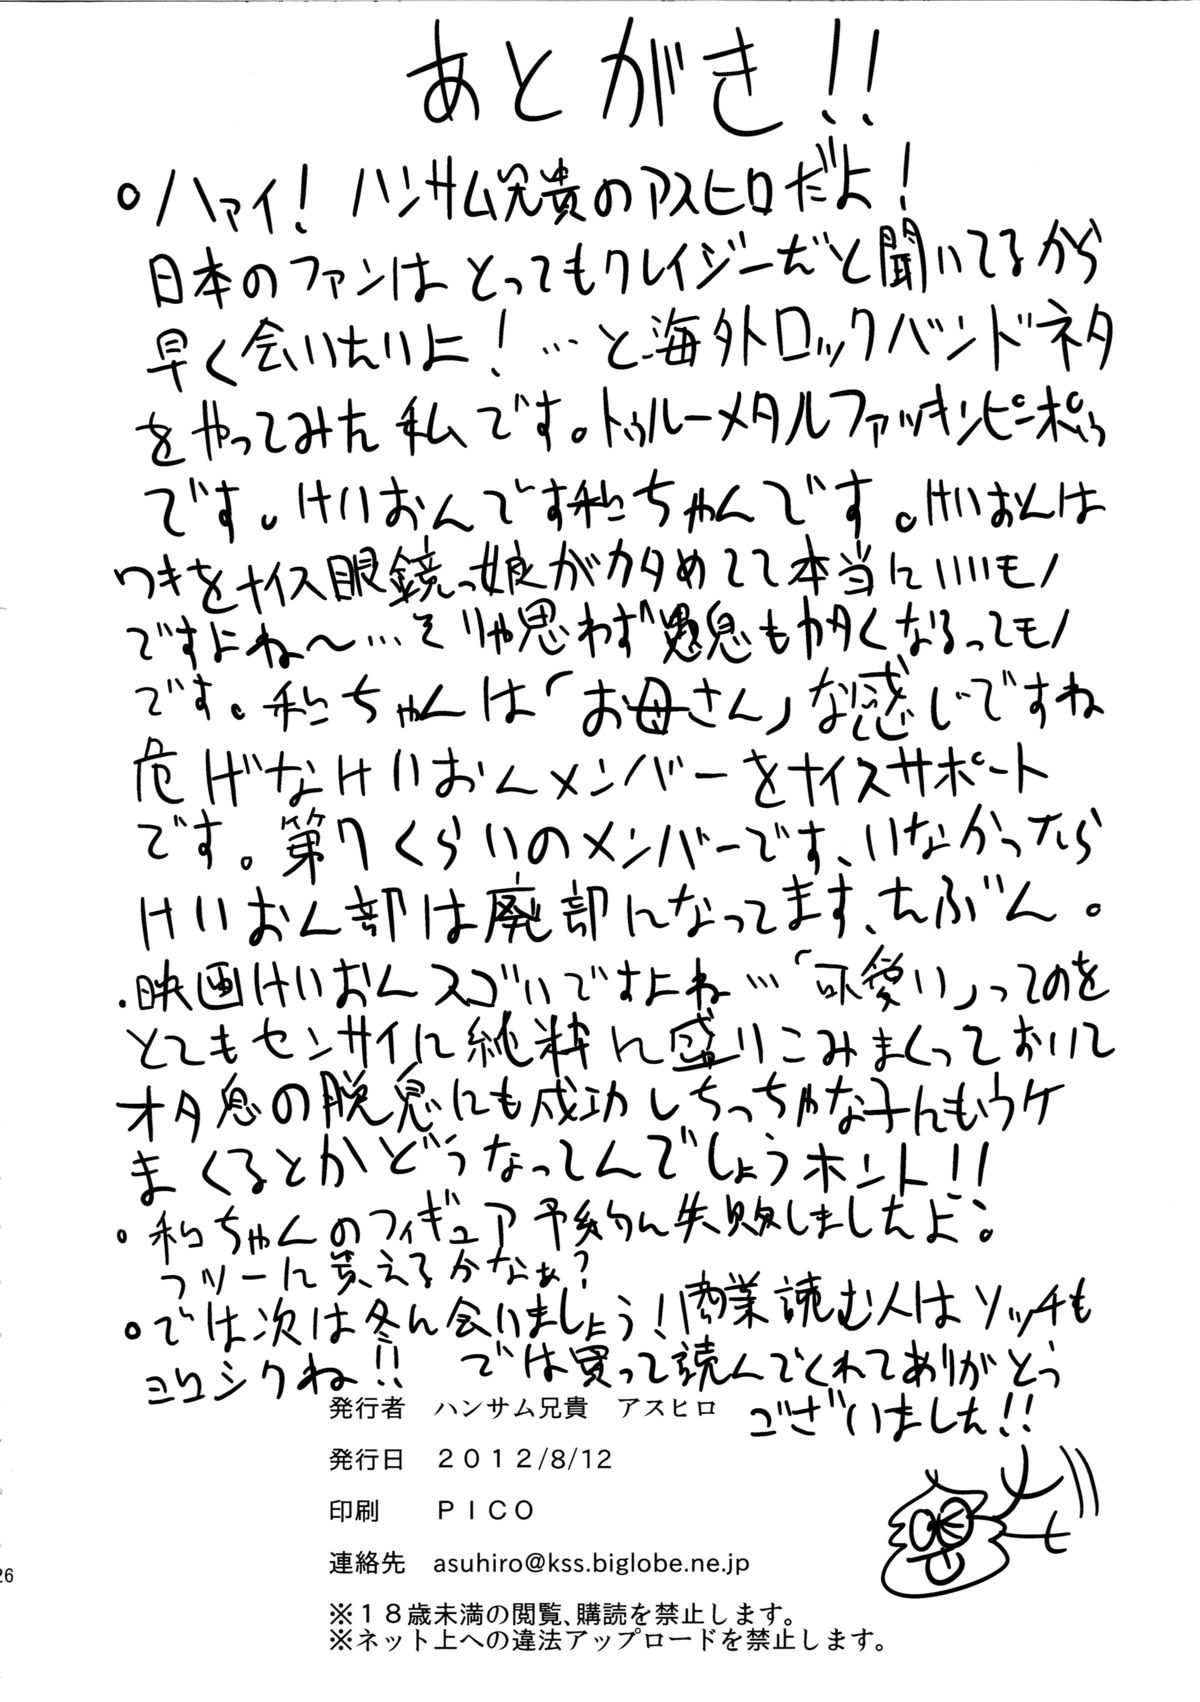 あとがき!!
○ハァイ! ハンサム兄貴のアスヒロだよ!
日本のファンはとってもクレイジーだと聞いてるから
早く会いたいよ! …と海外ロックバンドネタ
をやってみた私です。トゥルーメタルファッキンピーポゥ
です。けいおんです和ちゃんです。けいおんは
ワキをナイス眼鏡っ娘がカタめてて本当にいいモノ
ですよね〜…そりゃ思わず愚息もカタくなるってモノ
です。和ちゃんは「お母さん」な感じですね
危げなけいおんメンバーをナイスサポート
です。第7くらいのメンバーです、いなかったら
けいおん部は廃部になってます、たぶん。
・映画けいおんスゴいですよね…「可愛い」ってのを
とてもセンサイに純粋に盛りこみまくっておいて
オタ臭の脱臭にも成功しちっちゃな子にもウケ
まくるとかどうなってんでしょうホント!!
○和ちゃんのフィギュア予約に失敗しましたよ。
フツーに買えるかなぁ?
○では次は冬に会いましょう! 商業読む人はソッチも
ヨロシクね!! では買って読んでくれてありがとう
ございました!!
発行者 ハンサム兄貴 アスヒロ
発行日 2012/8/12
印刷 PICO
連絡先 asuhiro@kss.biglobe.ne.jp
※18歳未満の閲覧、購読を禁止します。
※ネット上への違法アップロードを禁止します。
26